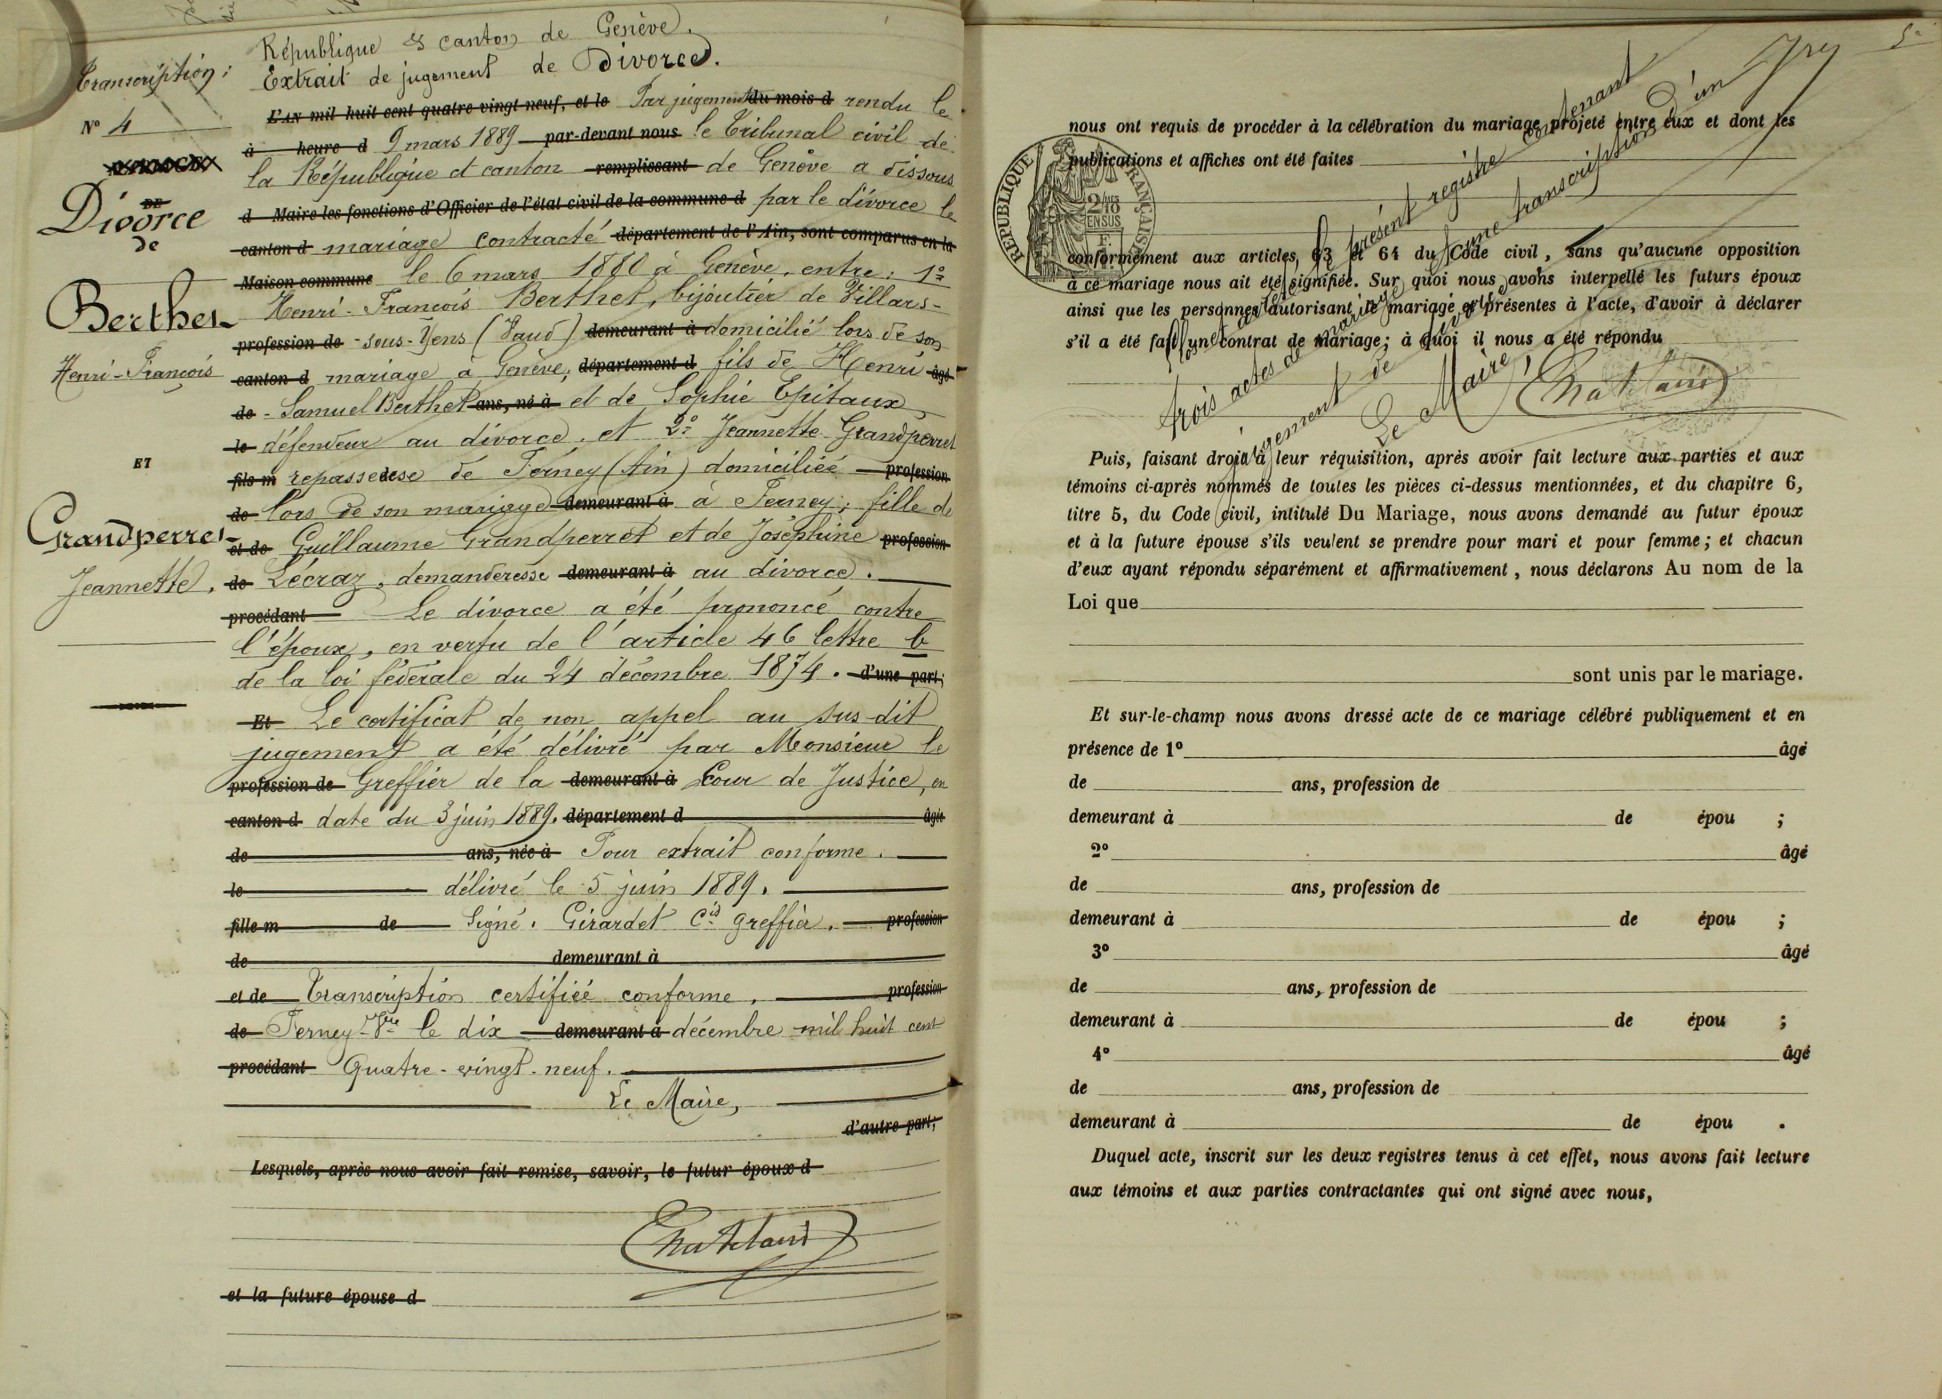 Transcription :
N° 4
MARIAGE
DE
Divorce
de
Berthet
Henri-François
ET
Grandperret
Jeannette.
République & canton de Genève.
Extrait de jugement de Divorce.
L'AN mil huit cent quatre vingt neuf, et le Par jugement du mois d rendu le
à heure d 9 mars 1889 par-devant nous le Tribunal civil de
la République et canton remplissant de Genève a dissous
d Maire les fonctions d'Officier de l'état civil de la commune d par le divorce le
canton d mariage contracté département de l'Ain, sont comparus en la
Maison commune le 6 mars 1880 à Genève, entre : 1°
Henri-François Berthet, bijoutier de Villars-
profession de -sous-Yens (Vaud) demeurant à domicilié lors de son
canton d mariage à Genève, département d fils de Henri âgé
de - Samuel Berthet ans, né à et de Sophie Epitaux,
le défendeur au divorce. et 2° Jeannette Grandperret
fils m repasseuse de Ferney (Ain) domiciliée profession
de lors de son mariage demeurant à à Ferney, fille de
et de Guillaume Grandperret et de Joséphine profession
de Lécraz, demanderesse demeurant à au divorce.
procédant Le divorce a été prononcé contre
l'époux, en vertu de l'article 46 lettre b
de la loi fédérale du 24 décembre 1874. d'une part;
Et Le certificat de non appel au sus-dit
jugement a été délivré par Monsieur le
profession de Greffier de la demeurant à Cour de Justice, en
canton d date du 3 juin 1889. département d âgée
de ans, née à Pour extrait conforme.
le délivré le 5 juin 1889.
fille m de Signé. Girardet Cis greffier. profession
de demeurant à
et de Transcription certifiée conforme. profession
de Ferney-Vre le dix demeurant à décembre mil huit cent
procédant Quatre-vingt-neuf.
Le Maire,
d'autre part;
Lesquels, après nous avoir fait remise, savoir, le futur époux d
Chatelain
et la future épouse d
nous ont requis de procéder à la célébration du mariage projeté entre eux et dont les
publications et affiches ont été faites
RÉPUBLIQUE FRANÇAISE
2/10
EN SUS
conformément aux articles 63 et 64 du Code civil, sans qu'aucune opposition
à ce mariage nous ait été signifiée. Sur quoi nous avons interpellé les futurs époux
ainsi que les personnes autorisant le mariage et présentes à l'acte, d'avoir à déclarer
s'il a été fait un contrat de mariage; à quoi il nous a été répondu
présent registre contenant
trois actes de mariage
une transcription d'un
jugement de divorce
Le Maire,
Chatelain
Puis, faisant droit à leur réquisition, après avoir fait lecture aux parties et aux
témoins ci-après nommés de toutes les pièces ci-dessus mentionnées, et du chapitre 6,
titre 5, du Code civil, intitulé Du Mariage, nous avons demandé au futur époux
et à la future épouse s'ils veulent se prendre pour mari et pour femme; et chacun
d'eux ayant répondu séparément et affirmativement, nous déclarons Au nom de la
Loi que
sont unis par le mariage.
Et sur-le-champ nous avons dressé acte de ce mariage célébré publiquement et en
présence de 1° âgé
de ans, profession de
demeurant à de épou ;
2° âgé
de ans, profession de
demeurant à de épou ;
3° âgé
de ans, profession de
demeurant à de épou ;
4° âgé
de ans, profession de
demeurant à de épou .
Duquel acte, inscrit sur les deux registres tenus à cet effet, nous avons fait lecture
aux témoins et aux parties contractantes qui ont signé avec nous,